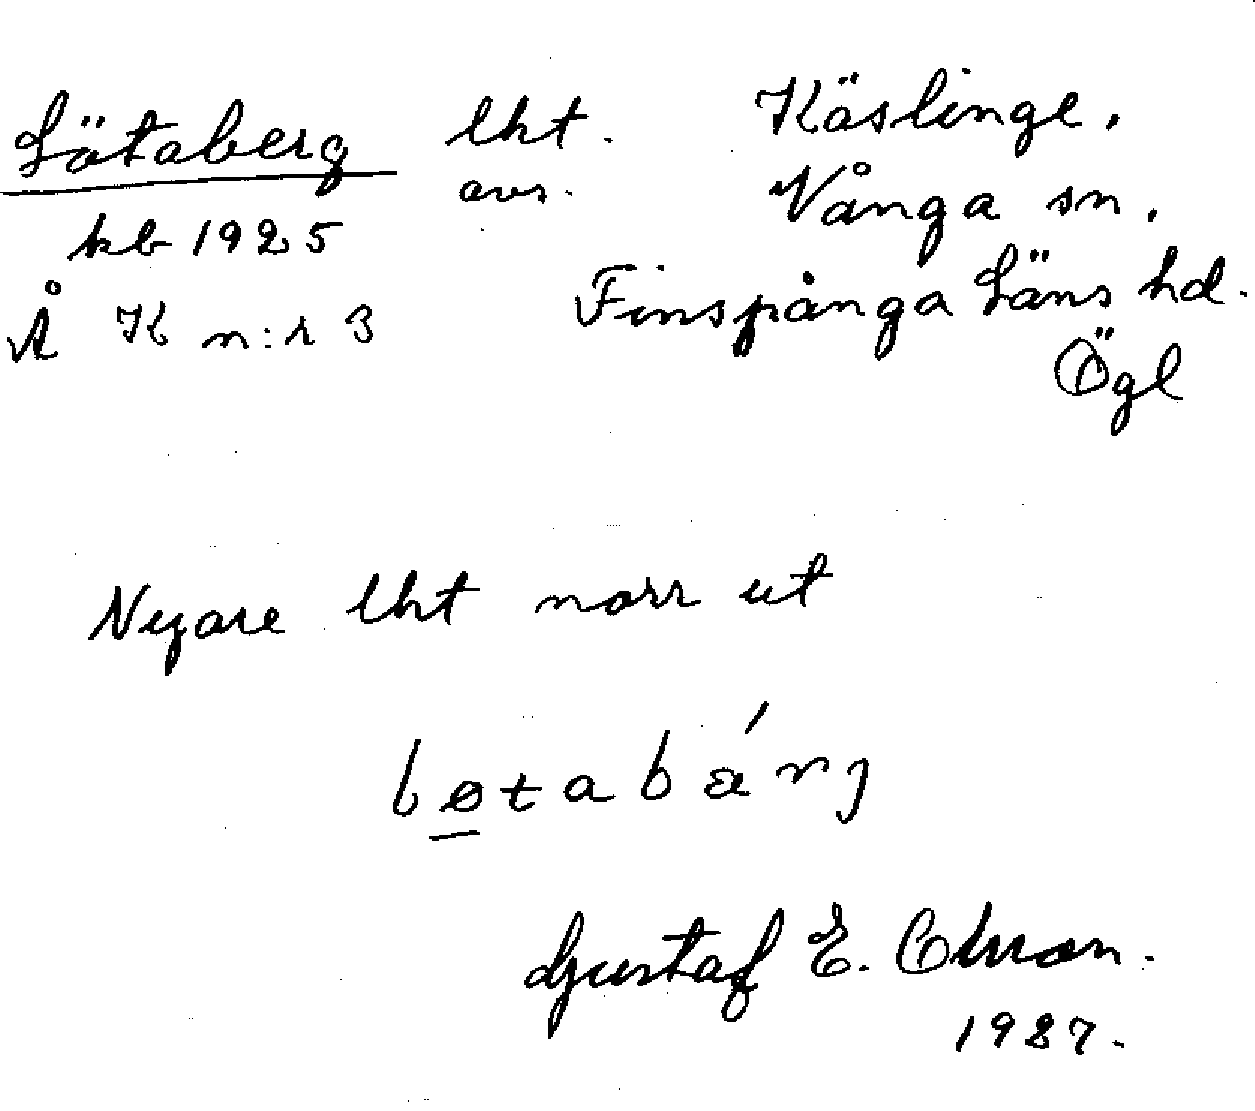 Lötaberg lht. Käslinge,
avs. Vånga sn,
kb 1925
Å K n:r 3 Finspånga Läns hd.
Ögl
Nyare lht norr ut
løtabǽrj
Gustaf E. Olsson.
1927.